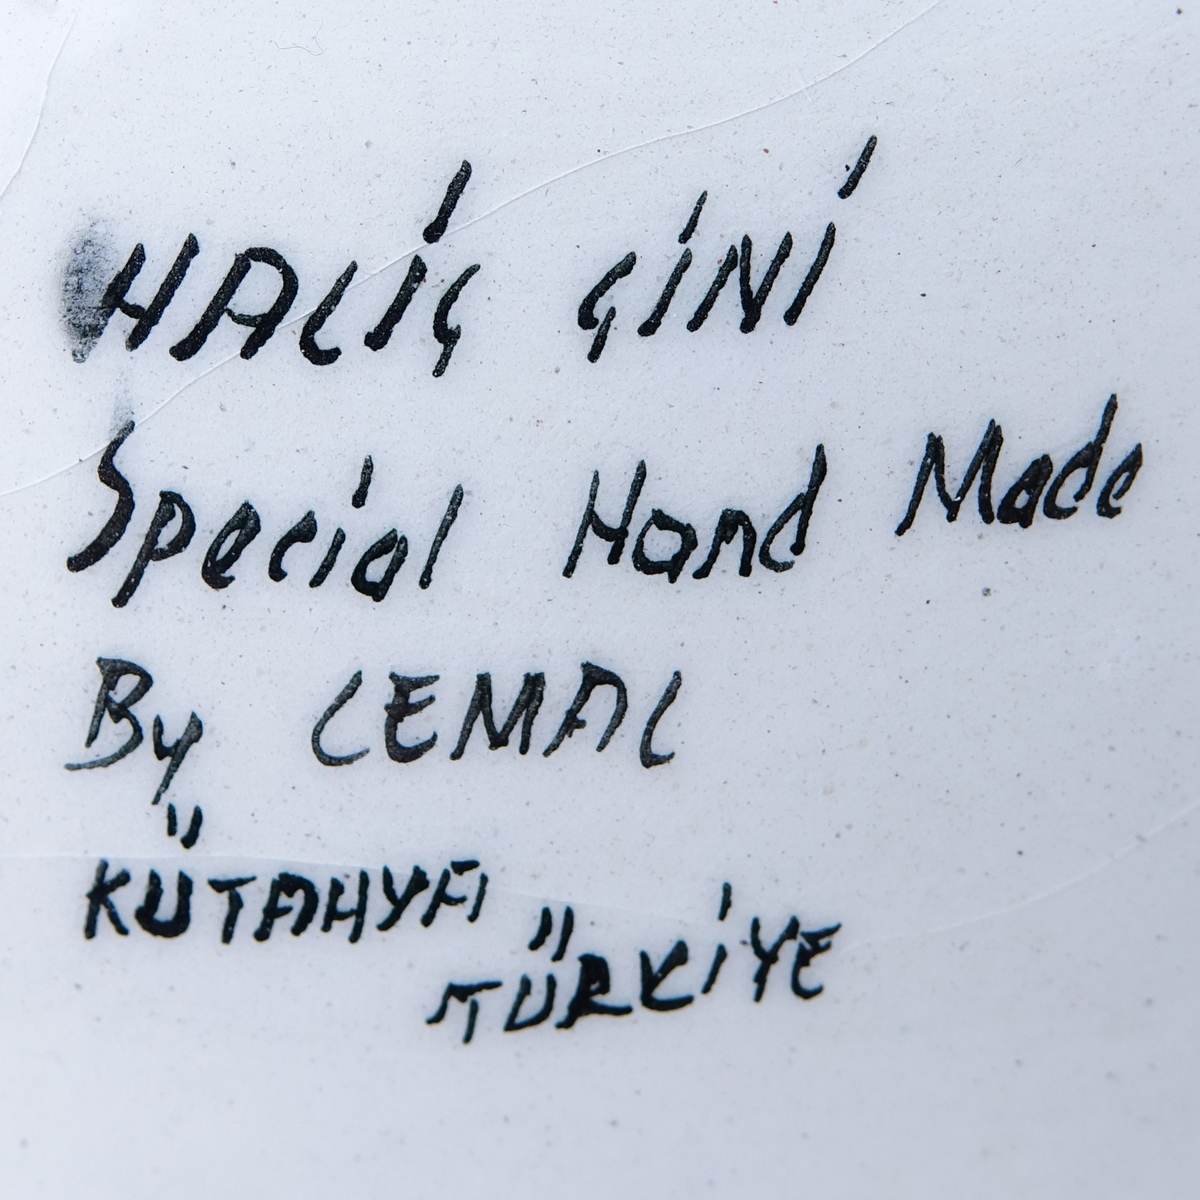 HALİÇ ÇİNİ
Special Hand Made
By CEMAL
KÜTAHYA
TÜRKİYE